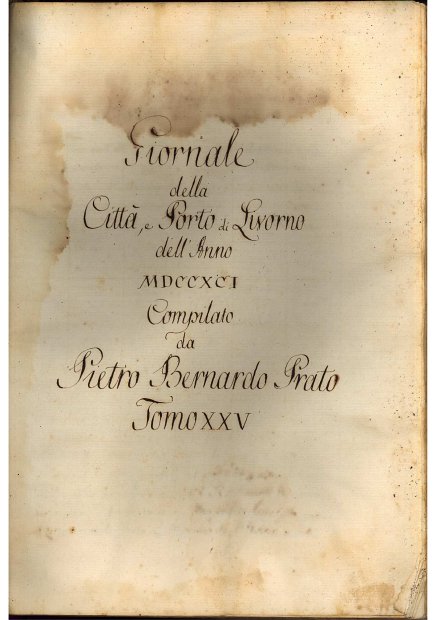 Giornale
della
Città, e Porto di Livorno
dell'Anno
MDCCXCI
Compilato
da
Pietro Bernardo Prato
Tomo XXV